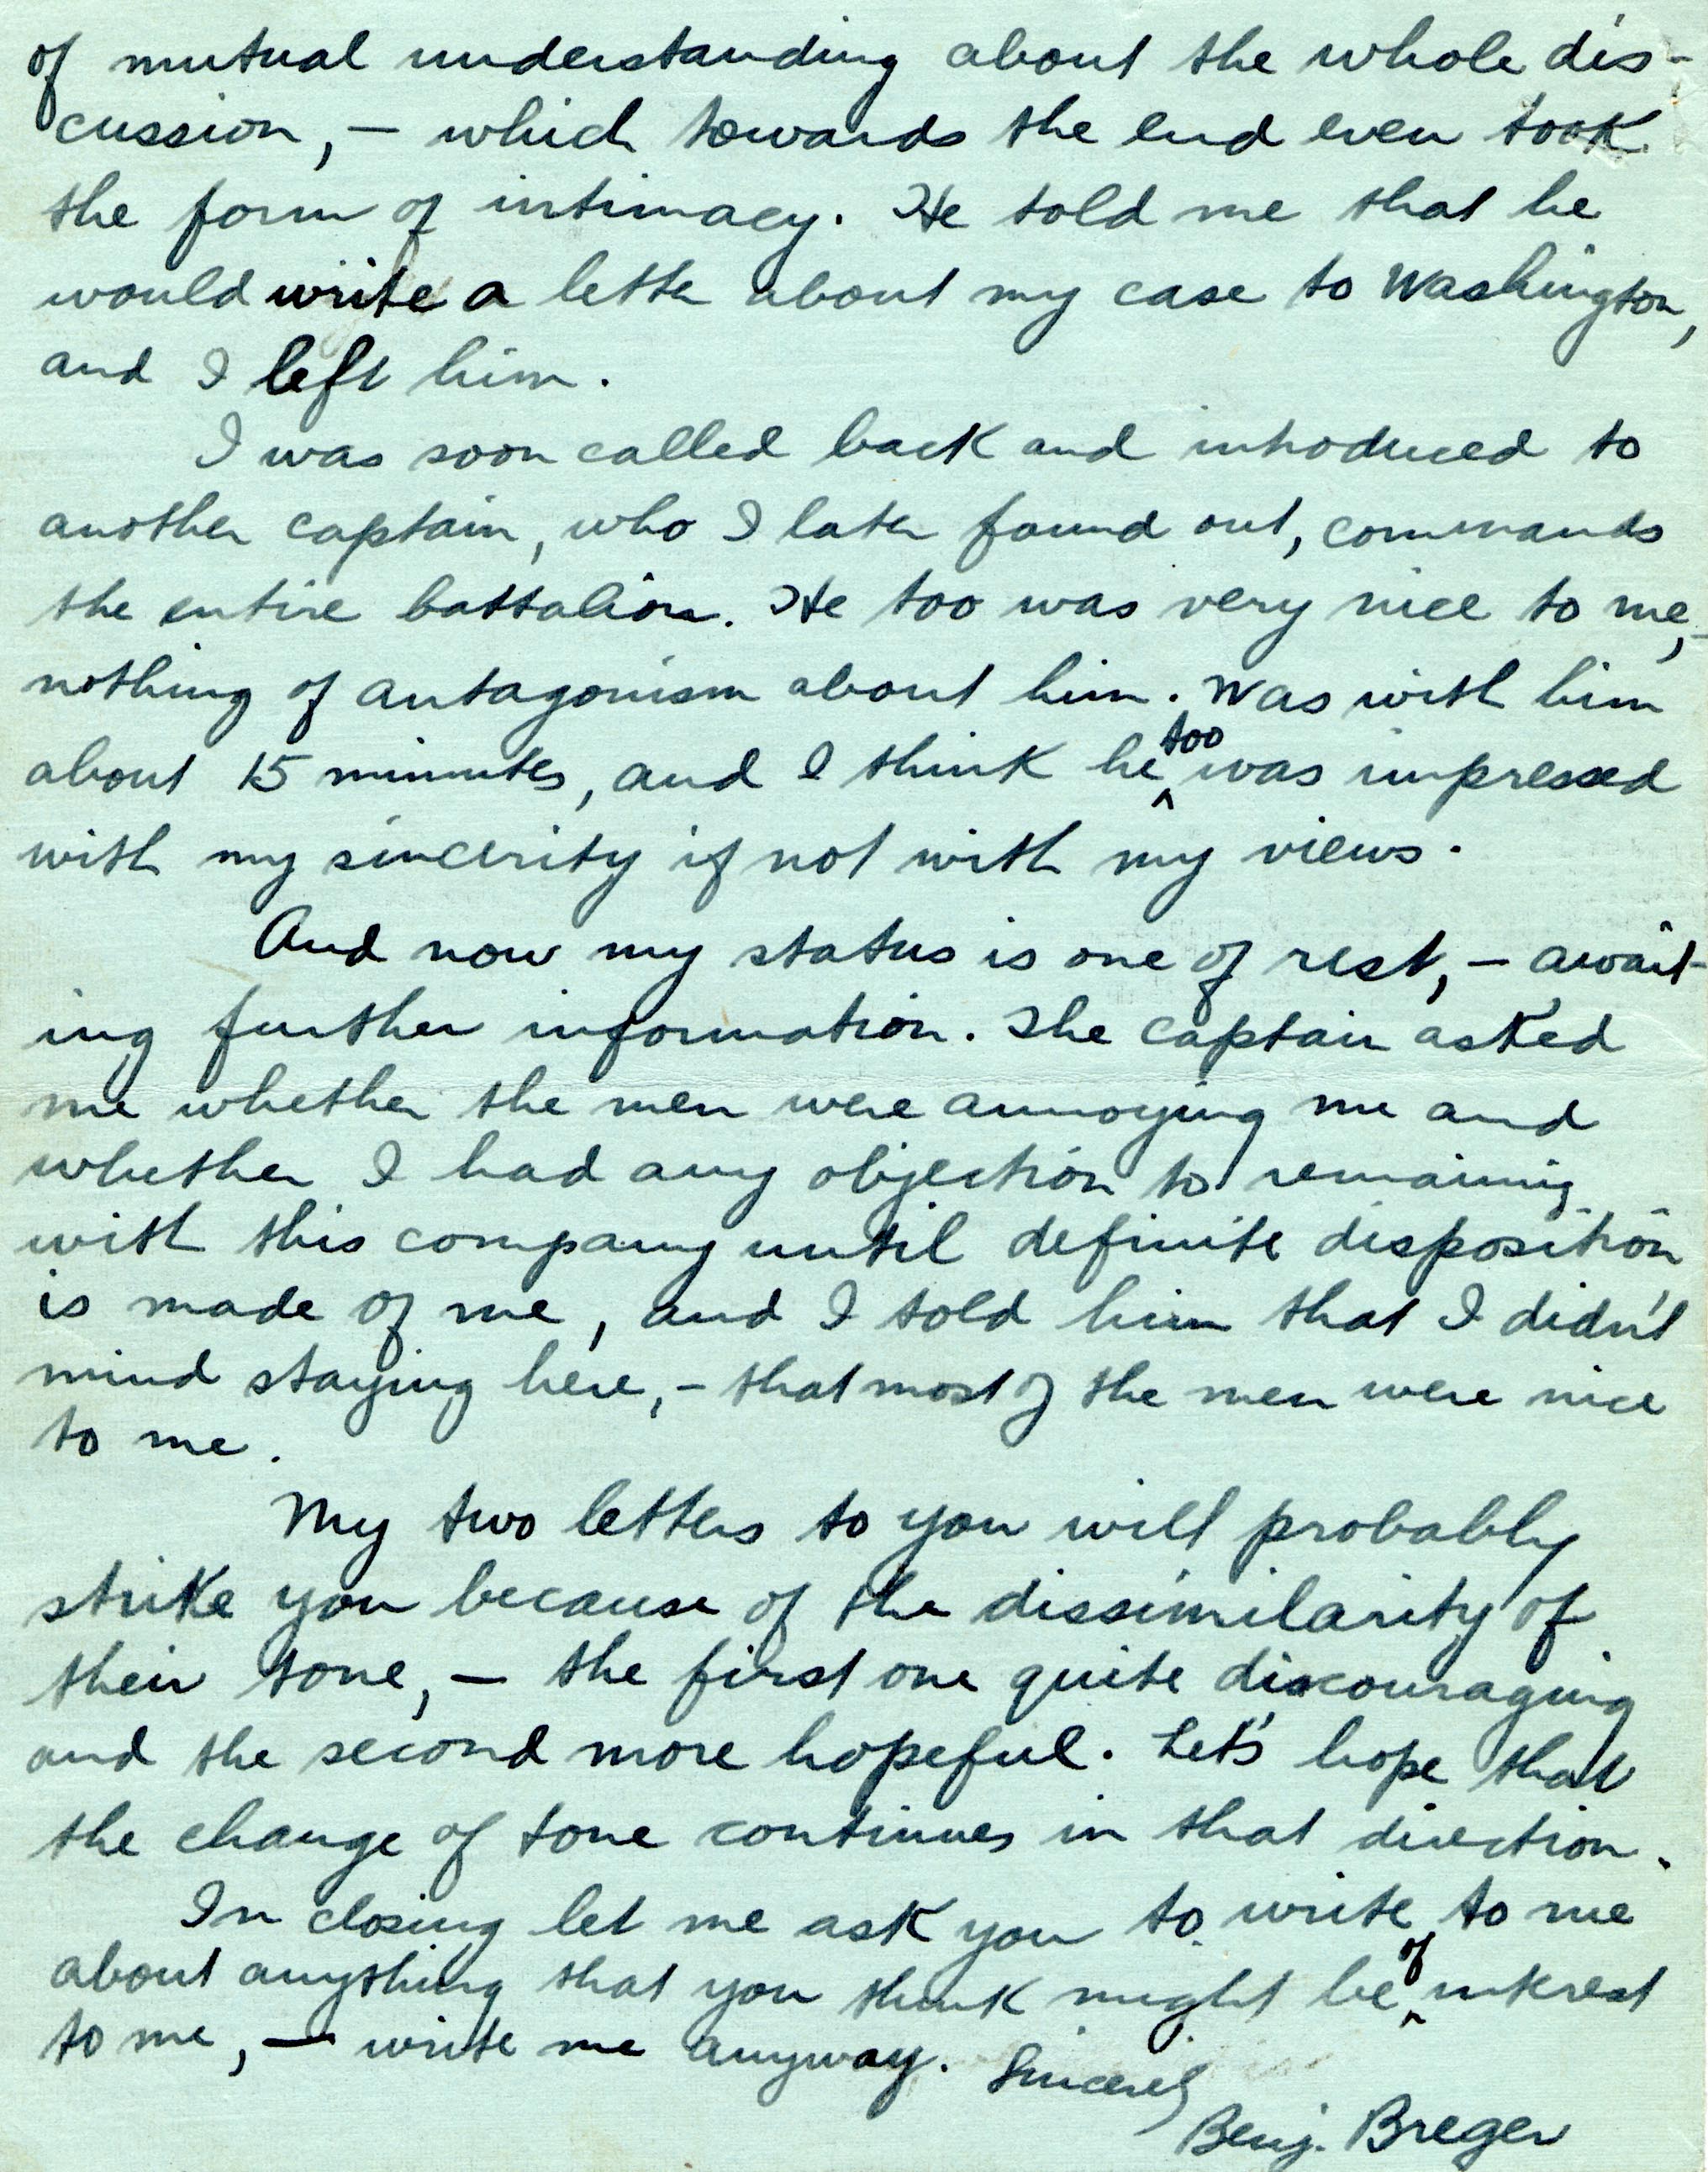 of mutual understanding about the whole dis-
cussion, — which towards the end even took
the form of intimacy. He told me that he
would write a letter about my case to Washington,
and I left him.
I was soon called back and introduced to
another captain, who I later found out, commands
the entire battalion. He too was very nice to me,-
nothing of antagonism about him. Was with him
about 15 minutes, and I think he too was impressed
with my sincerity if not with my views.
And now my status is one of rest, — await-
ing further information. The captain asked
me whether the men were annoying me and
whether I had any objection to remaining
with this company until definite disposition
is made of me, and I told him that I didn't
mind staying here, - that most of the men were nice
to me.
My two letters to you will probably
strike you because of the dissimilarity of
their tone, — the first one quite discouraging
and the second more hopeful. Let's hope that
the change of tone continues in that direction.
In closing let me ask you to write to me
about anything that you think might be of interest
to me, — write me anyway.
Sincerely
Benj. Breger